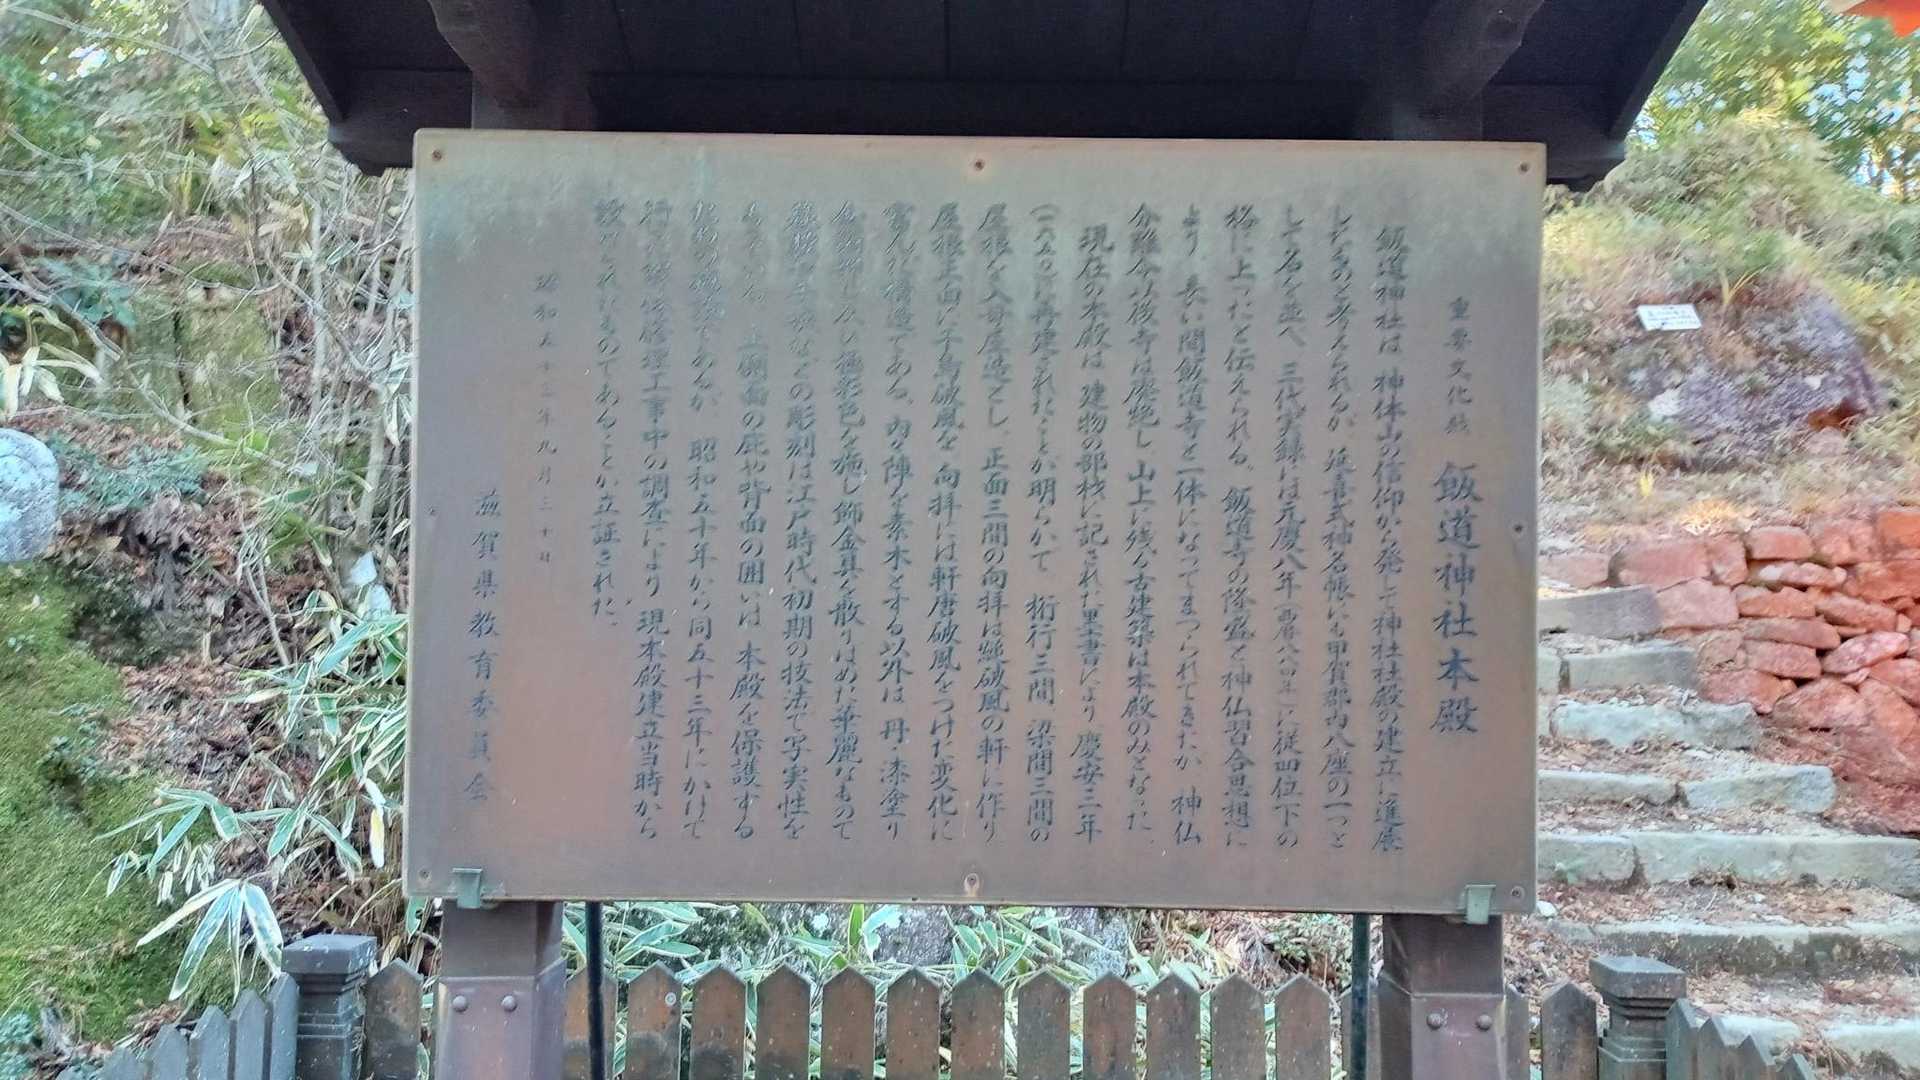 重要文化財 飯道神社本殿
飯道神社は、神体山の信仰から発して神社社殿の建立に進展
したものと考えられるが、延喜式神名帳にも甲賀郡内八座の一つと
して名を並べ、三代実録には元慶八年(西暦八八四年)に従四位下の
格に上ったと伝えられる。飯道寺の隆盛と神仏習合思想に
より、長い間飯道寺と一体になってまつられてきたが、神仏
分離令以後寺は廃絶し、山上に残る古建築は本殿のみとなった。
現在の本殿は、建物の部材に記された墨書により、慶安三年
(一六五〇)に再建されたことが明らかで、桁行三間、梁間三間の
屋根を入母屋造とし、正面三間の向拝は縋破風の軒に作り
屋根正面に千鳥破風を、向拝には軒唐破風をつけた変化に
富んだ構造である。内々陣を素木とする以外は、丹・漆塗り
極彩色を施し飾金具を散りばめた華麗なもので
などの彫刻は江戸時代初期の技法で写実性を
側面の庇や背面の囲いは、本殿を保護する
ための施設であるが、昭和五十年から同五十三年にかけて
行った解体修理工事中の調査により、現本殿建立当時から
設けられたものであることが立証された。
昭和五十三年九月三十日
滋賀県教育委員会